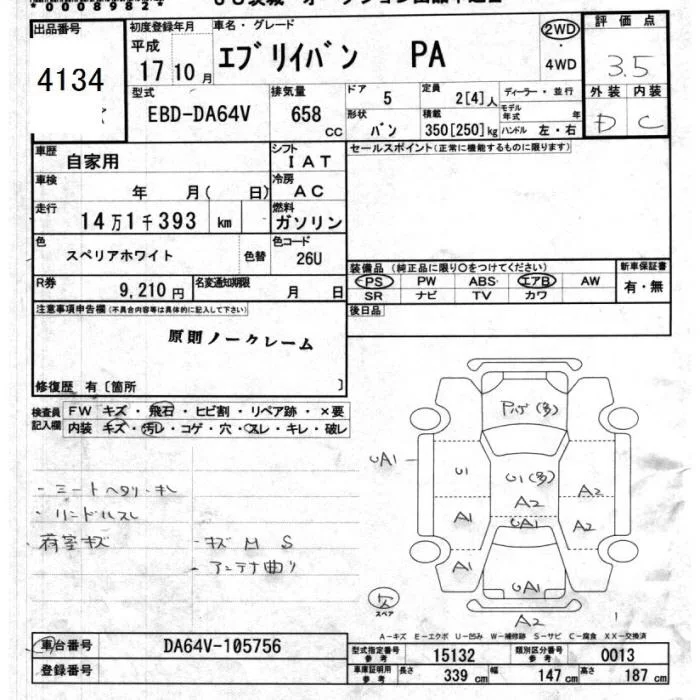 *00089824
出品番号 初度登録年月 車名・グレード 2WD 評価点
4134 平成 17 10月 エブリイバン PA ・ 4WD 3.5
型式 排気量 ドア 5 定員 2[4]人 ディーラー・並行 外装 内装
EBD-DA64V 658 CC 形状 バン 積載 350[250]kg モデル年式 年 ハンドル 左・右 D C
車歴 自家用 シフト IAT セールスポイント(正常に機能するものに限ります)
車検 年 月( 日) 冷房 AC
走行 14万1千393 km 燃料 ガソリン
色 スペリアホワイト 色替 色コード 26U
装備品(純正品に限り〇をつけてください) 新車保証書
R券 9,210円 名変通知期限 月 日 PS PW ABS エアB AW 有・無
SR ナビ TV カワ
注意事項申告欄(不具合内容等は具体的に記入して下さい) 後日品
原則ノークレーム
修復歴 有〔箇所 〕
検査員 FW キズ・飛石・ヒビ割・リペア跡・×要
記入欄 内装 キズ・汚レ・コゲ・穴・スレ・キレ・破レ
UA1 U1 U1(多) A2 A2
A1 UA1 A2
A1 UA1
A2
・ミートヘタリ・キレ
・リンドルスレ
荷室キズ ・キズ M S
・アンテナ曲り
スペア
A-キズ E-エクボ U-凹み W-補修跡 S-サビ C-腐食 XX-交換済
車台番号 DA64V-105756 型式指定番号 参考 15132 類別区分番号 参考 0013
登録番号 車庫証明用 参考 長さ 339 cm 幅 147 cm 高さ 187 cm